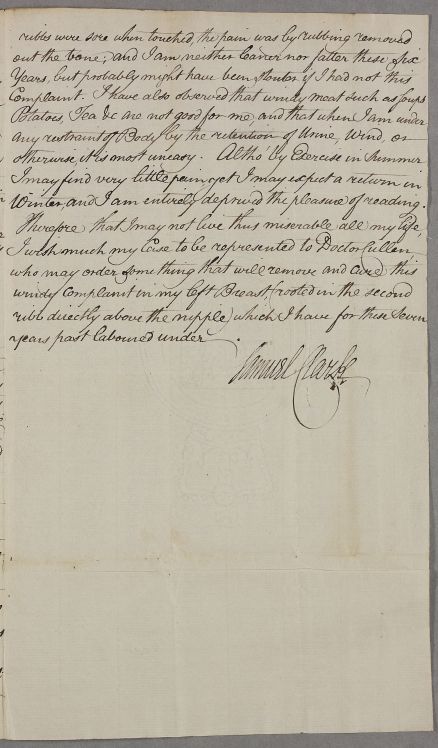 ribbs were sore when touched, the pain was by rubbing removed
out the bone; and I am neither leaner nor fatter these six
Years, but probably might have been stouter if I had not this
Complaint. I have also observed that windy meat such as Soups
Potatoes, Tea &c are not good for me, and that when I am under
any restraint of Body by the retention of Urine, Wind, or
otherwise, it is most uneasy. Altho' by Exercise in Summer
I may find very little pain, yet I may expect a return in
Winter, and I am entirely deprived the pleasure of reading.
Therefore that I may not live thus miserable all my life,
I wish much my Case to be represented to Doctor Cullen
who may order something that will remove and cure this
windy Complaint in my left Breast, (rooted in the second
ribb directly above the nipple) which I have for these Seven
years past laboured under.
Samuel Clark